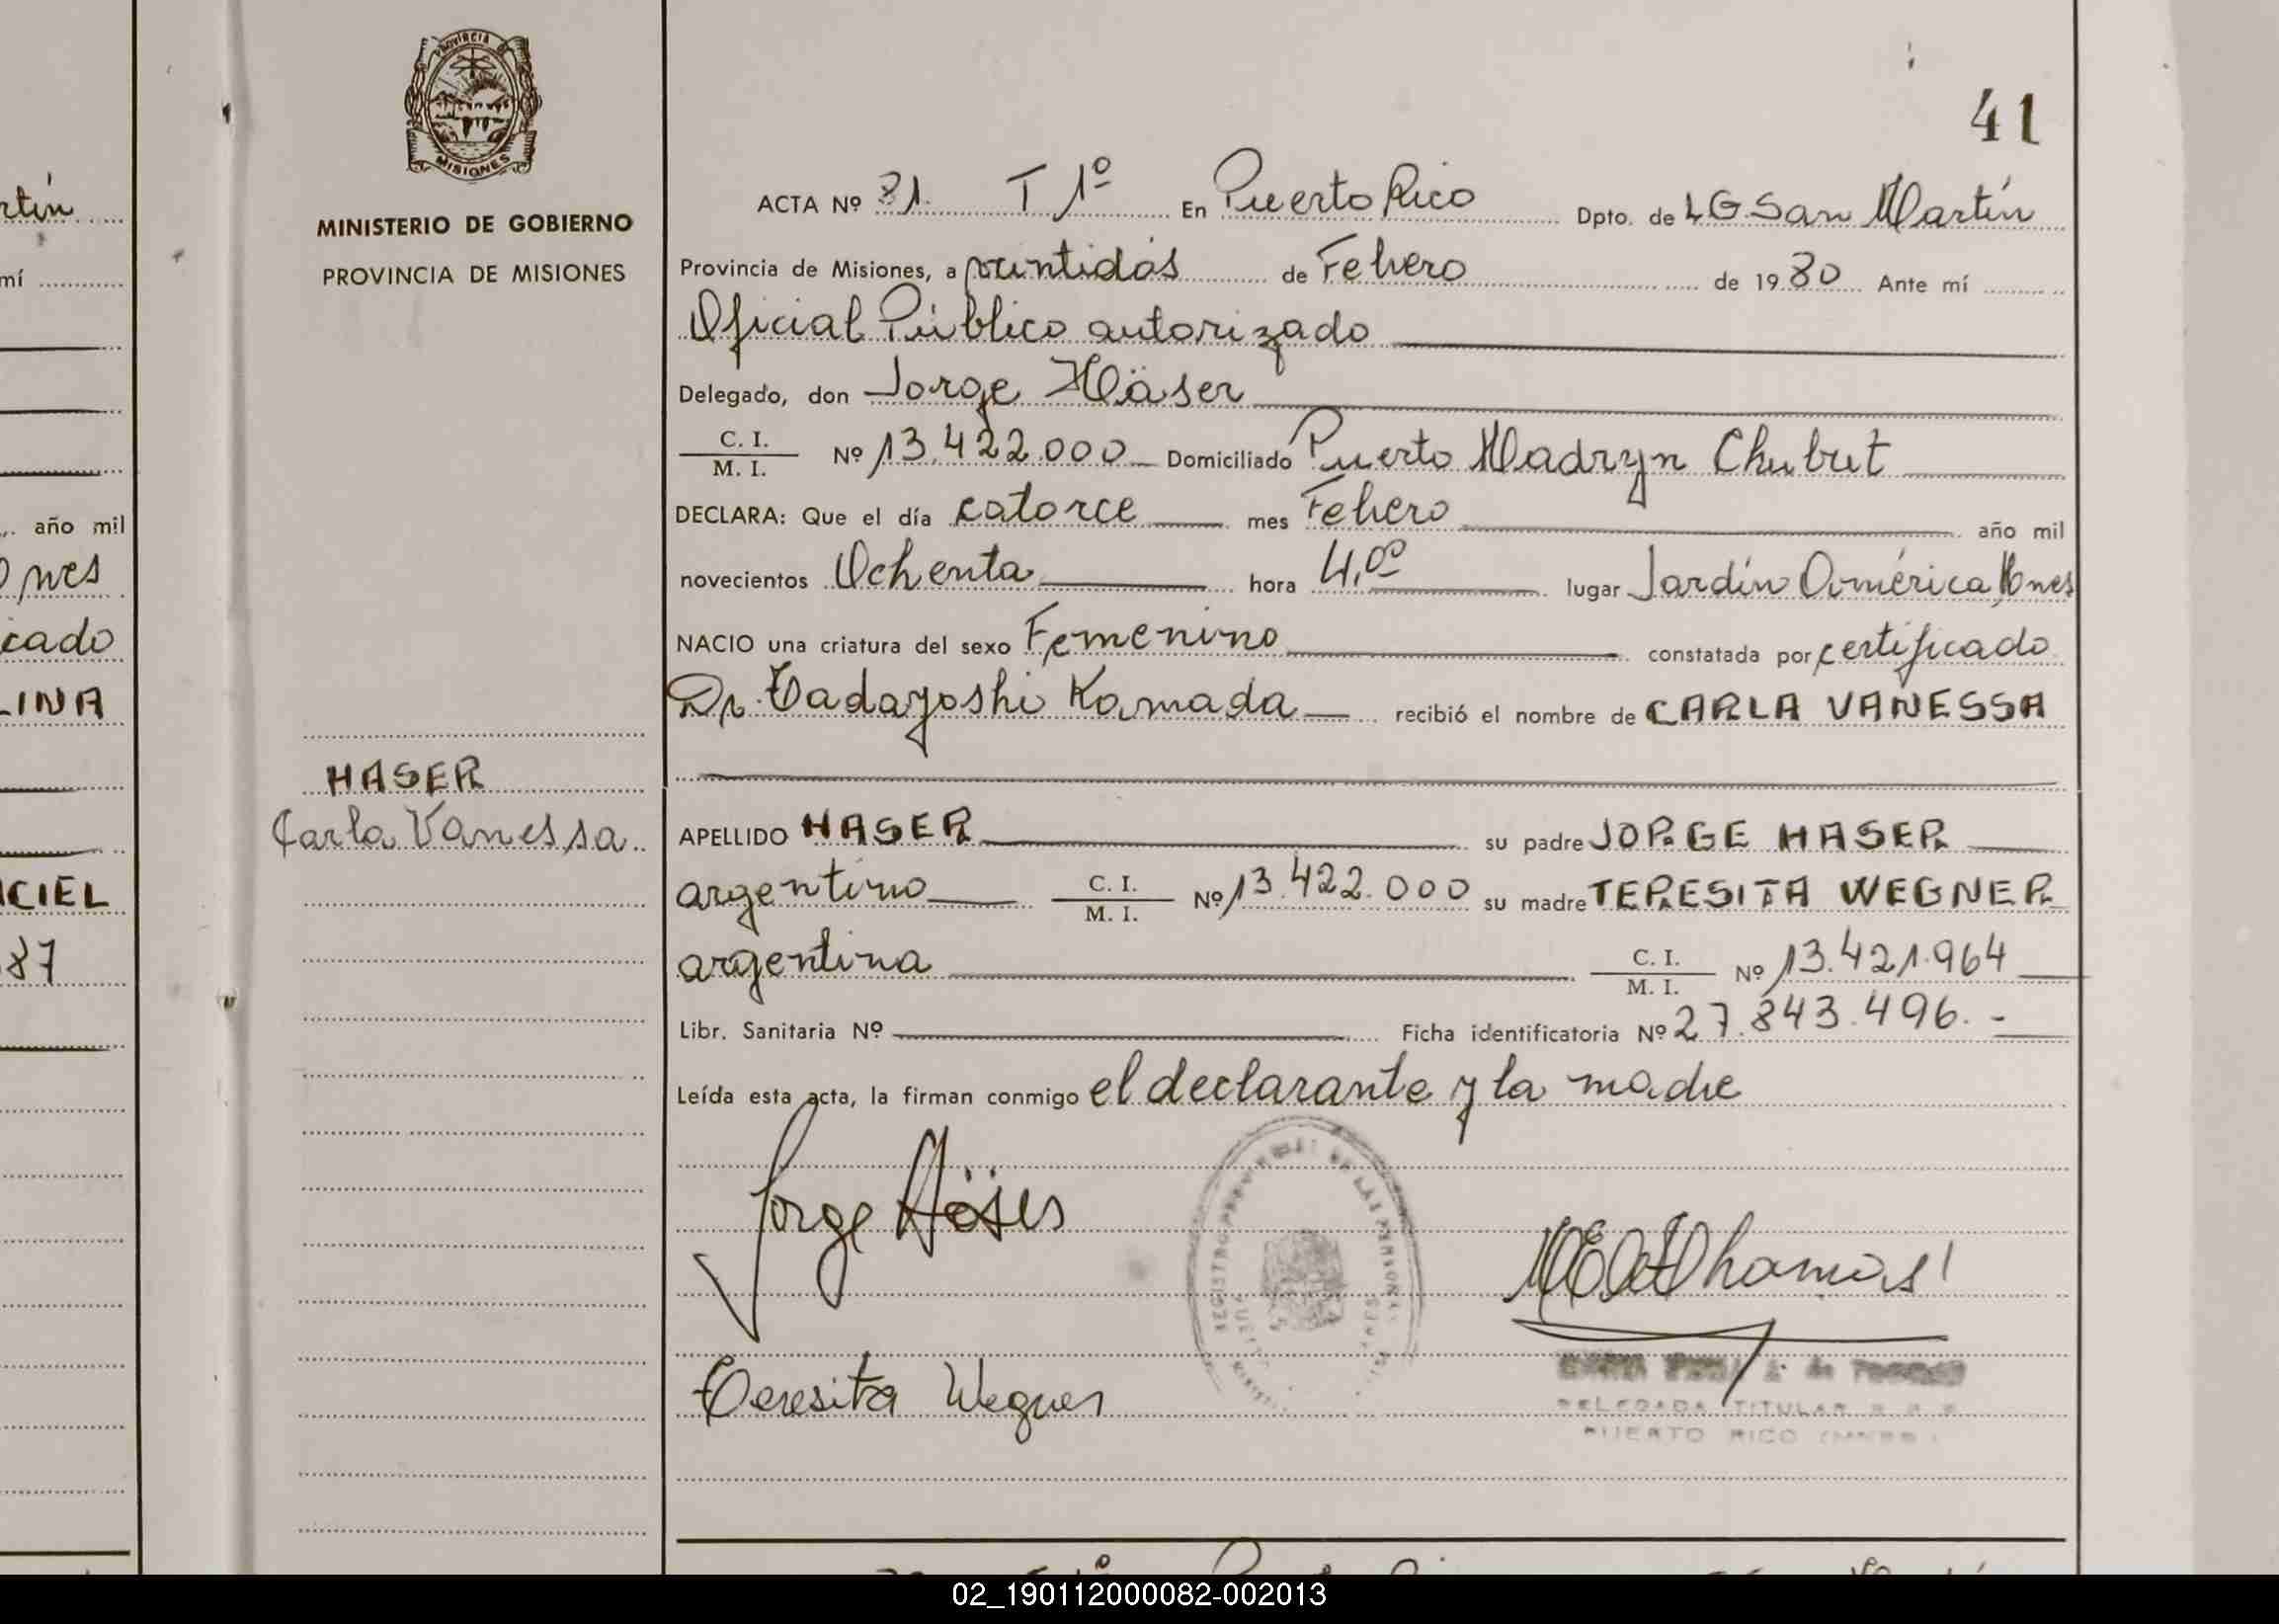 PROVINCIA DE
MISIONES
MINISTERIO DE GOBIERNO
PROVINCIA DE MISIONES
HASER
Carla Vanessa
rtín
mí
año mil
ones
cado
LINA
CIEL
87
41
ACTA Nº 81. T 1º En Puerto Rico Dpto. de L.G. San Martín
Provincia de Misiones, a veintidós de Febrero de 1980 Ante mí
Oficial Público autorizado
Delegado, don Jorge Häser
C. I. / M. I. Nº 13.422.000 Domiciliado Puerto Madryn Chubut
DECLARA: Que el día catorce mes Febrero año mil
novecientos Ochenta hora 4,00 lugar Jardín América Mnes
NACIO una criatura del sexo Femenino constatada por certificado
Dr. Tadayoshi Kamada recibió el nombre de CARLA VANESSA
APELLIDO HASER su padre JORGE HASER
argentino C. I. / M. I. Nº 13.422.000 su madre TERESITA WEGNER
argentina C. I. / M. I. Nº 13.421.964
Libr. Sanitaria Nº Ficha identificatoria Nº 27.843.496.-
Leída esta acta, la firman conmigo el declarante y la madre
Jorge Häser
Teresita Wegner
REGISTRO PROVINCIAL DE LAS PERSONAS
DELEGADA TITULAR
PUERTO RICO
02_190112000082-002013